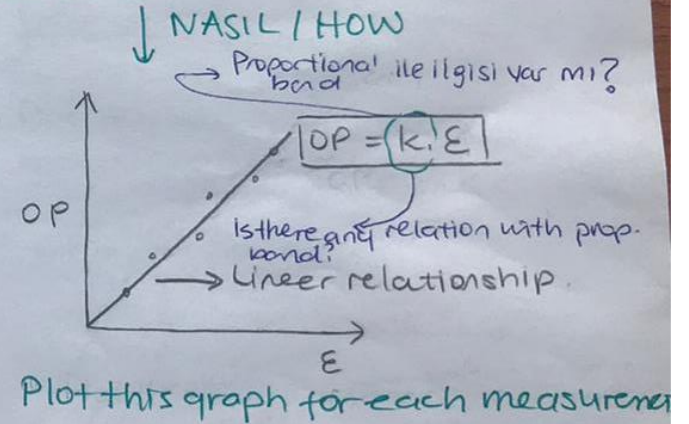 NASIL / HOW
Proportional ile ilgisi var mı?
band
OP = k.ε
OP
is there any relation with prop.
band?
Lineer relationship.
ε
Plot this graph for each measuremen